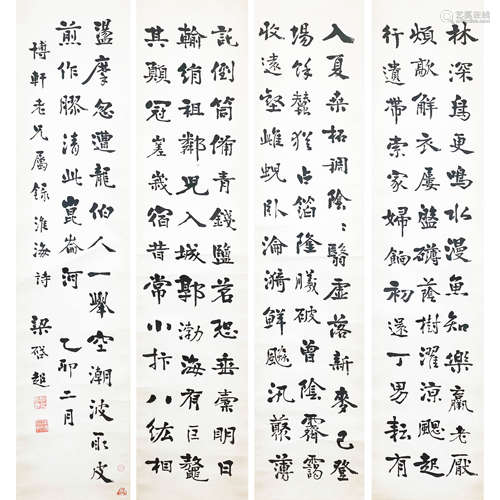 林深鳥更鳴水漫魚知樂羸老厭
煩敲解衣屢盤礴蔭樹濯涼颸起
行遺帶索家婦餉初還丁男耘有
入夏桑柘稠陰〻翳虛落新麥已登
場餘蠶猶占箔隆曦破曾陰霽靄
收遠壑雌蜺臥淪漪鮮飈汎藂薄
託倒筒備青錢鹽茗恐垂橐明日
輸絹租鄰兒入城郭渤海有巨鼇
其顛冠嵳峩宿昔常小抃八紘相
盪摩忽遭龍伯人一舉空潮波取皮
煎作膠清此崑崙河 乙卯二月
博軒老兄屬錄淮海詩 梁啓超